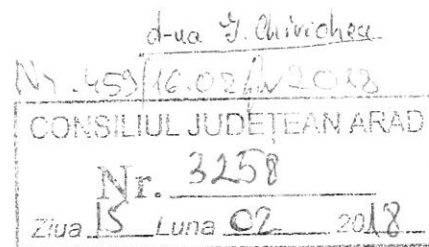 d-na
Nr. 459/16.02 2018
CONSILIUL JUDEȚEAN ARAD
Nr. 3258
Ziua 15 Luna 02 2018